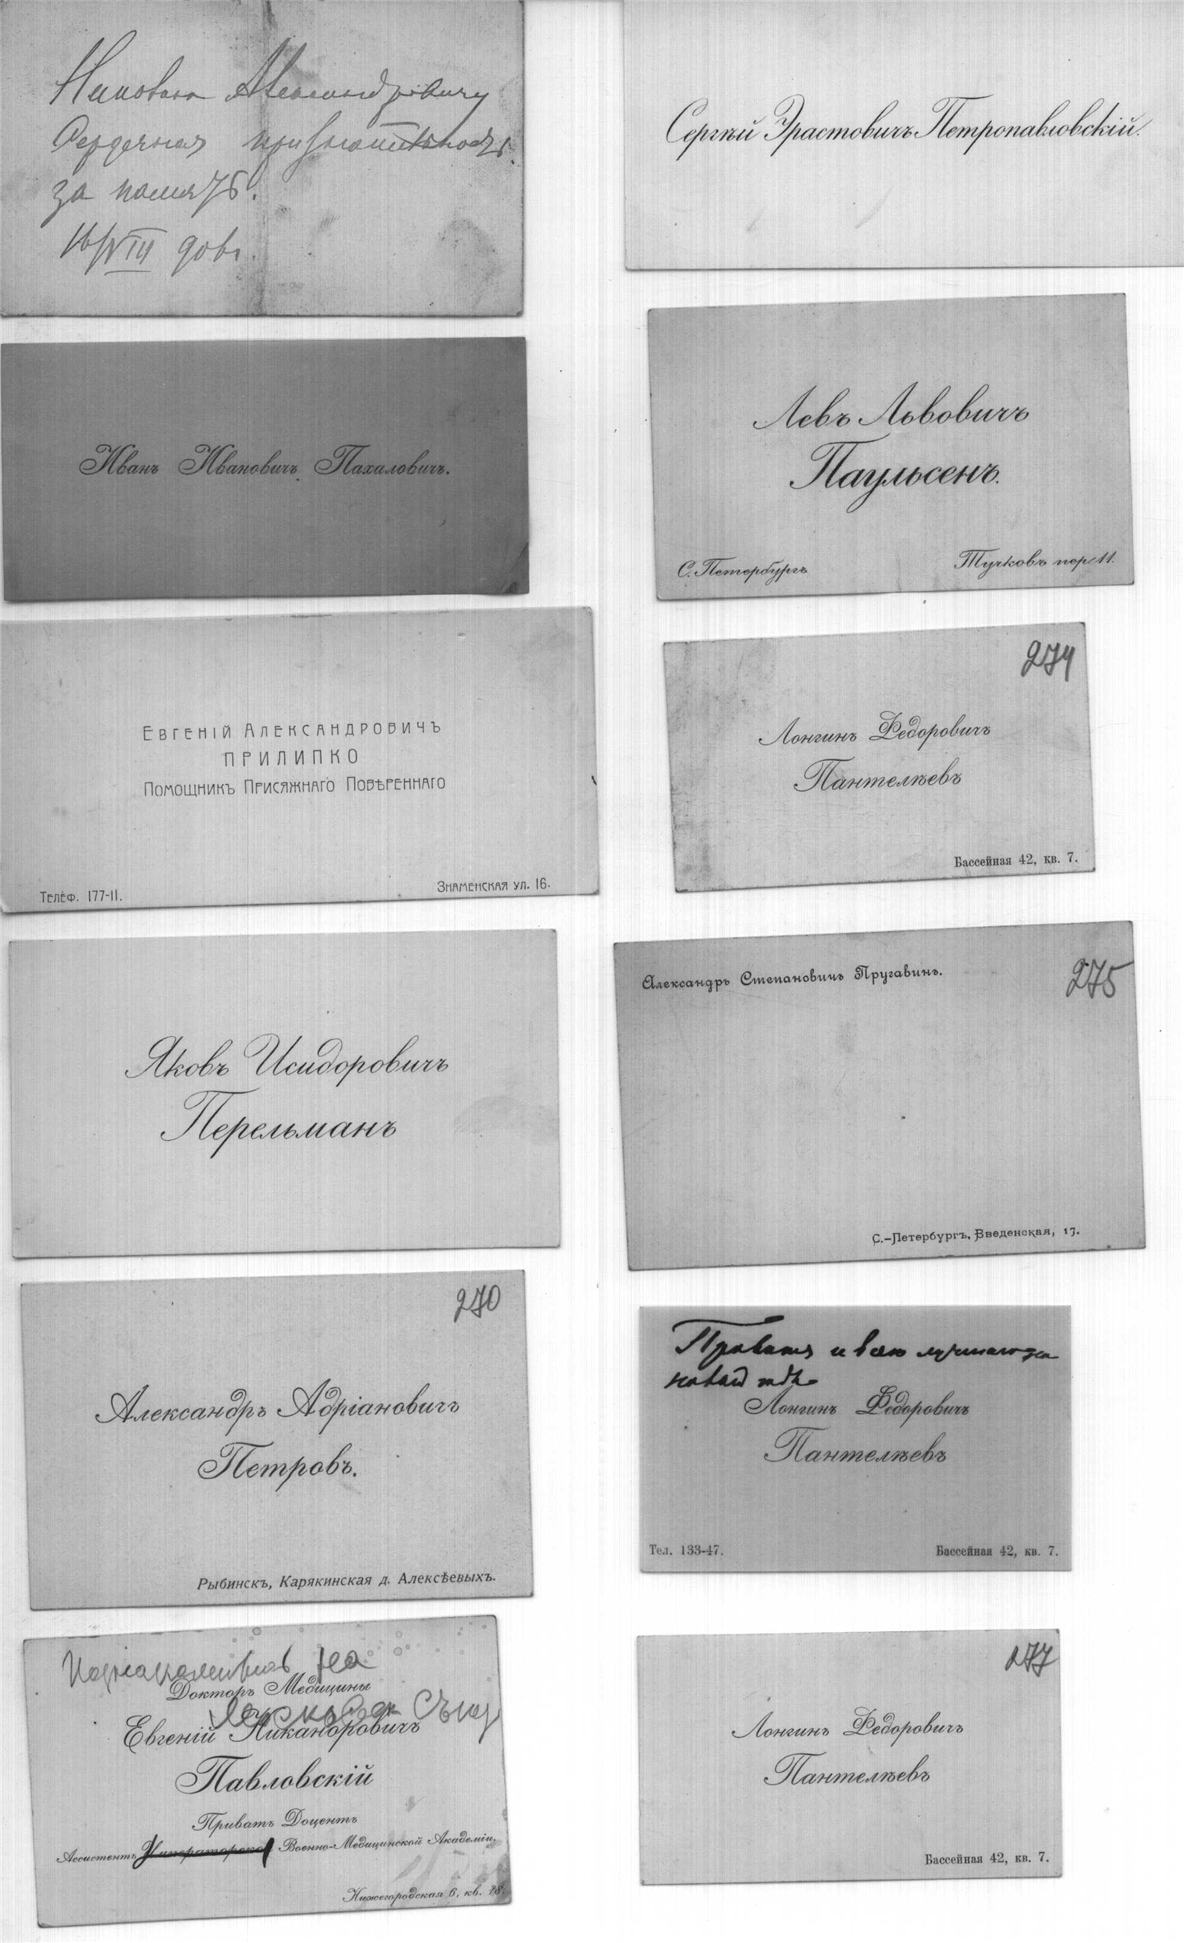 Николаю Александровичу
Сердечная признательность
за память.
16/VIII
Иванъ Ивановичъ Пахаловичъ.
Евгеній Александровичъ
ПРИЛИПКО
Помощникъ Присяжнаго Повѣреннаго
Телеф. 177-11.
Знаменская ул. 16.
Яковъ Исидоровичъ
Перельманъ
270
Александръ Адріановичъ
Петровъ.
Рыбинскъ, Карякинская д. Алексѣевыхъ.
на
Докторъ Медицины
Евгеній Никаноровичъ
Павловскій
Приватъ Доцентъ
Ассистентъ Императорской Военно-Медицинской Академіи,
Нижегородская 6, кв. 18
Сергѣй Эрастовичъ Петропавловскій.
Левъ Львовичъ
Паульсенъ.
С. Петербургъ
Тучковъ пер. 11.
274
Лонгинъ Федоровичъ
Пантелѣевъ
Бассейная 42, кв. 7.
275
Александръ Степановичъ Пругавинъ.
С.-Петербургъ, Введенская, 17.
Привѣтъ и всего лучшаго на
новый годъ
Лонгинъ Федоровичъ
Пантелѣевъ
Тел. 133-47.
Бассейная 42, кв. 7.
277
Лонгинъ Федоровичъ
Пантелѣевъ
Бассейная 42, кв. 7.